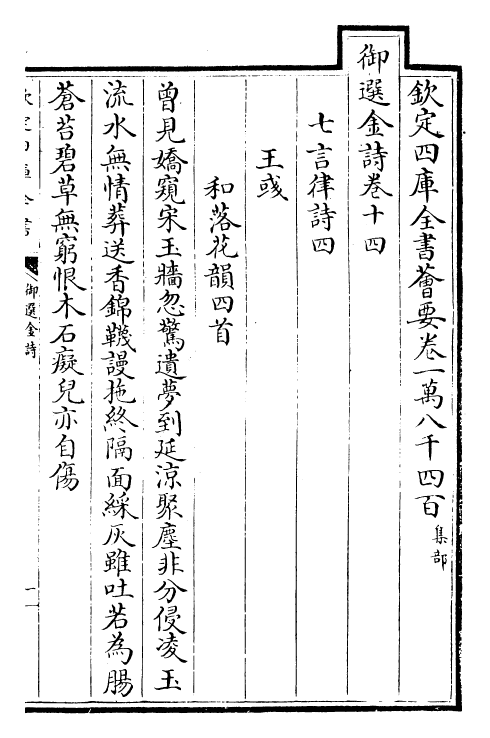 欽定四庫全書薈要卷一萬八千四百集部
御選金詩卷十四
七言律詩四
王彧
和落花韻四首
曾見嬌窺宋玉牆忽驚遺夢到延涼聚塵非分侵凌玉
流水無情葬送香錦韉謾拖終隔面綵灰雖吐若為腸
蒼苔碧草無窮恨木石癡兒亦自傷
御選金詩